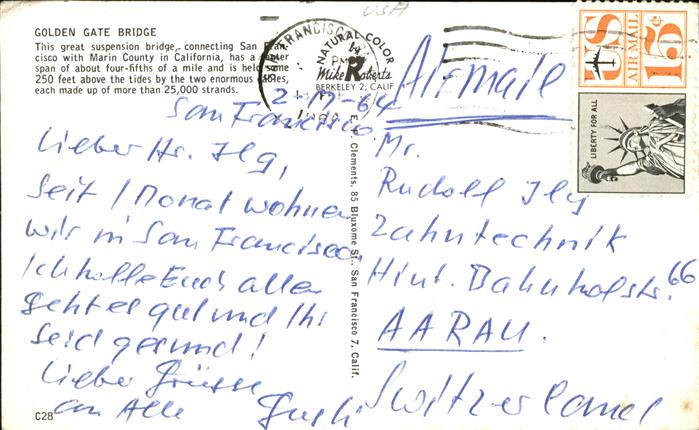 GOLDEN GATE BRIDGE
This great suspension bridge, connecting San Fran-
cisco with Marin County in California, has a center
span of about four-fifths of a mile and is held some
250 feet above the tides by the two enormous cables,
each made up of more than 25,000 strands.
USA
SAN FRANCISCO
PM
NATURAL COLOR
Mike Roberts
BERKELEY 2, CALIF
US
AIR MAIL
15c
LIBERTY FOR ALL
Airmail
2-17-64
San Francisco
Lieber Hr. Ilg,
seit 1 Monat wohnen
wir in San Francisco
Ich hoffe Euch allen
geht es gut und Ihr
seid gesund!
Liebe Grüsse
an Alle
C28
E. F. Clements, 85 Bluxome St., San Francisco 7, Calif.
Mr.
Rudolf Ilg
Zahntechnik
Hint. Bahnhofstr. 66
AARAU.
Switzerland